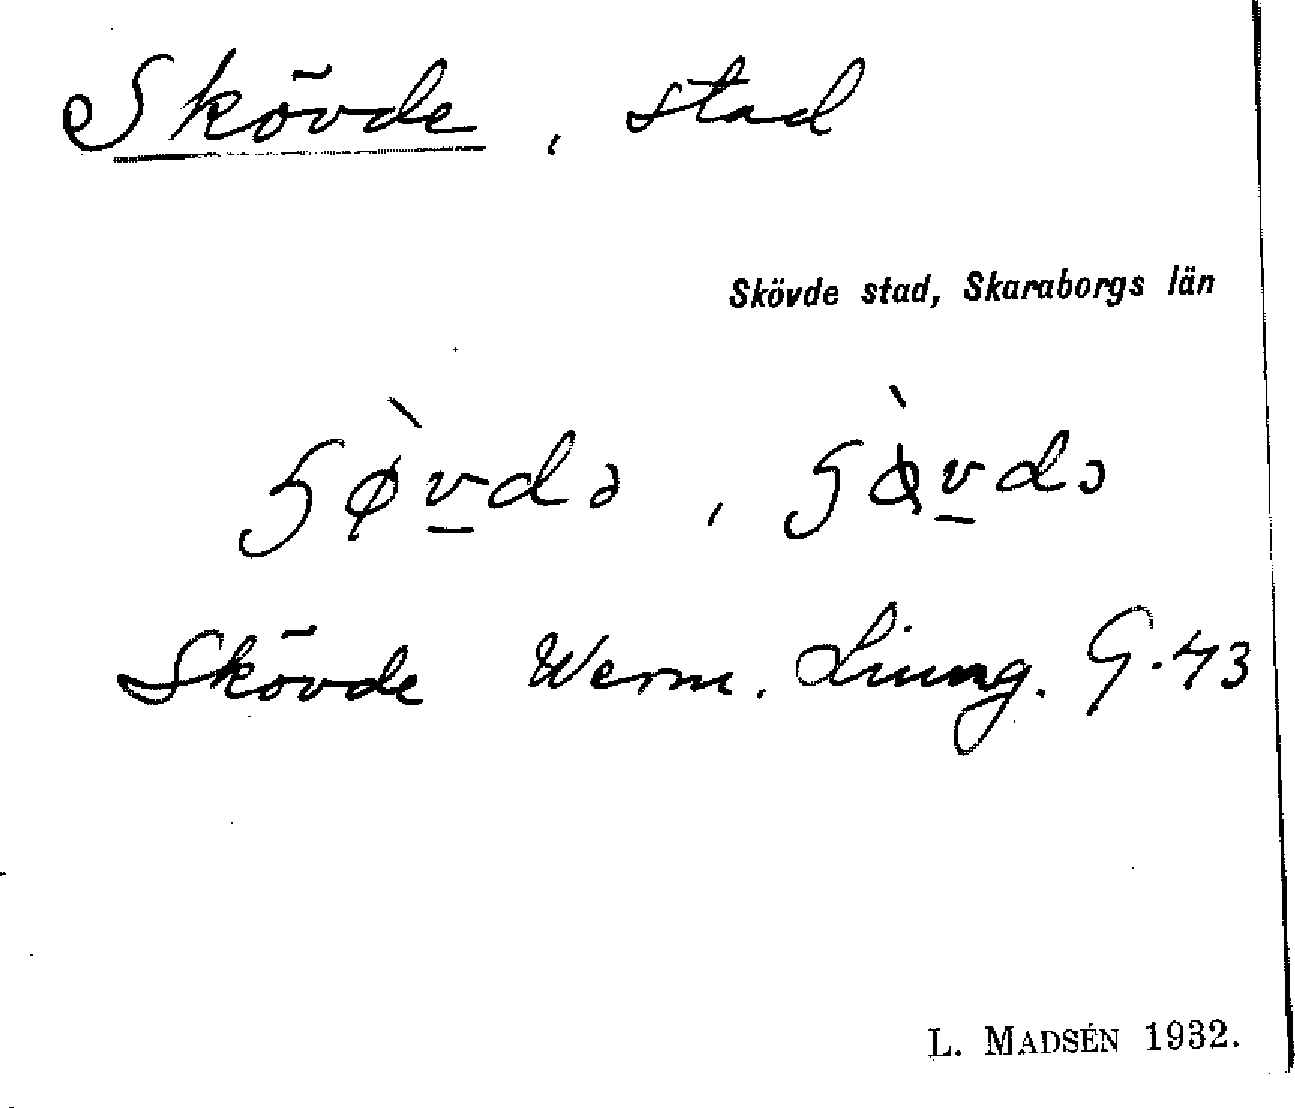 Skövde, stad
Skövde stad, Skaraborgs län
Skövde Werm. Liung. G. 43
L. MADSÉN 1932.